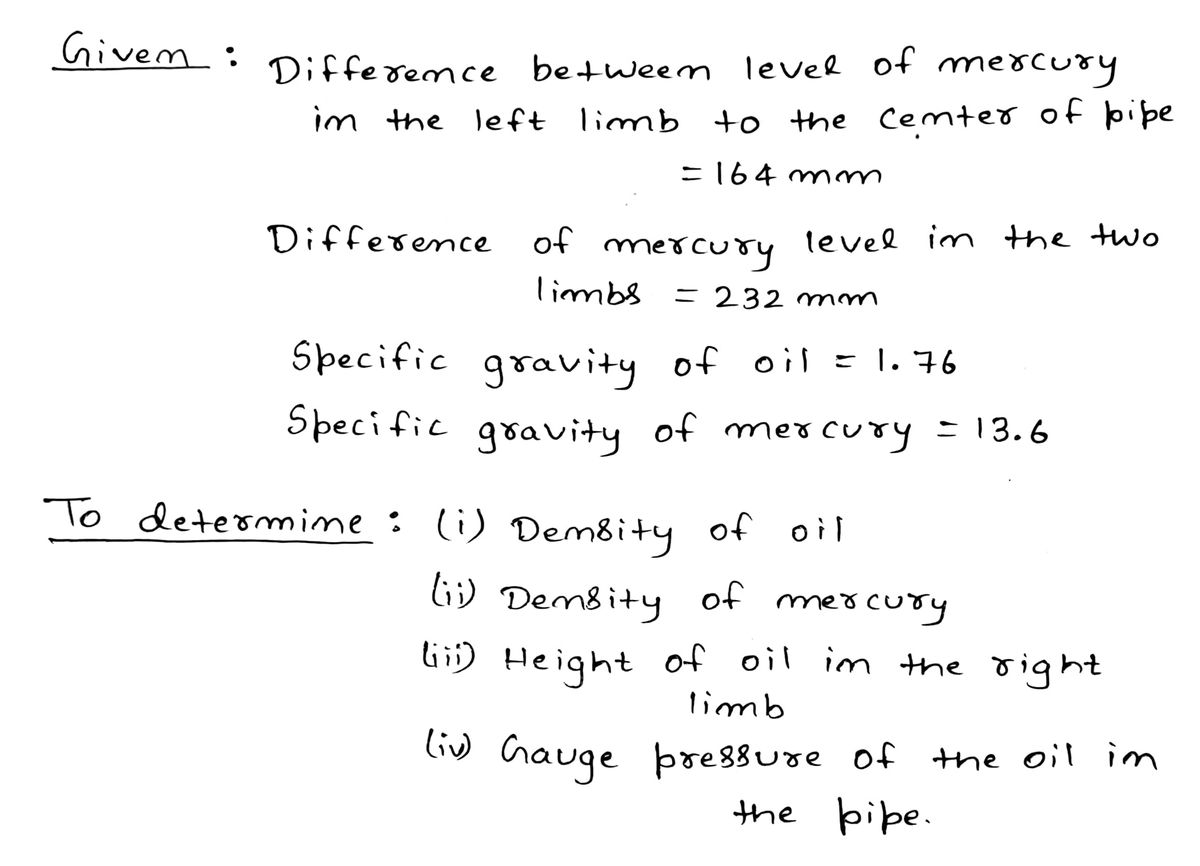 Given : Difference between level of mercury
in the left limb to the center of pipe
= 164 mm
Difference of mercury level in the two
limbs = 232 mm
Specific gravity of oil = 1.76
Specific gravity of mercury = 13.6
To determine : (i) Density of oil
(ii) Density of mercury
(iii) Height of oil in the right
limb
(iv) Gauge pressure of the oil in
the pipe.